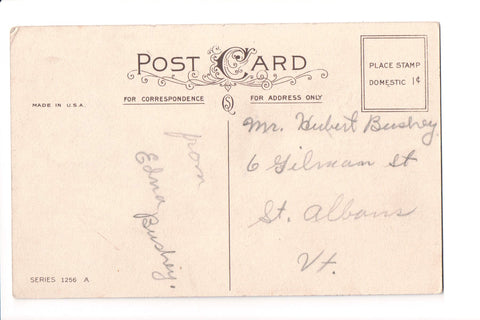 POST CARD
PLACE STAMP
DOMESTIC 1¢
MADE IN U.S.A.
FOR CORRESPONDENCE
FOR ADDRESS ONLY
from
Edna Bushey.
Mr. Hubert Bushey
6 Gilman St
St. Albans
Vt.
SERIES 1256 A